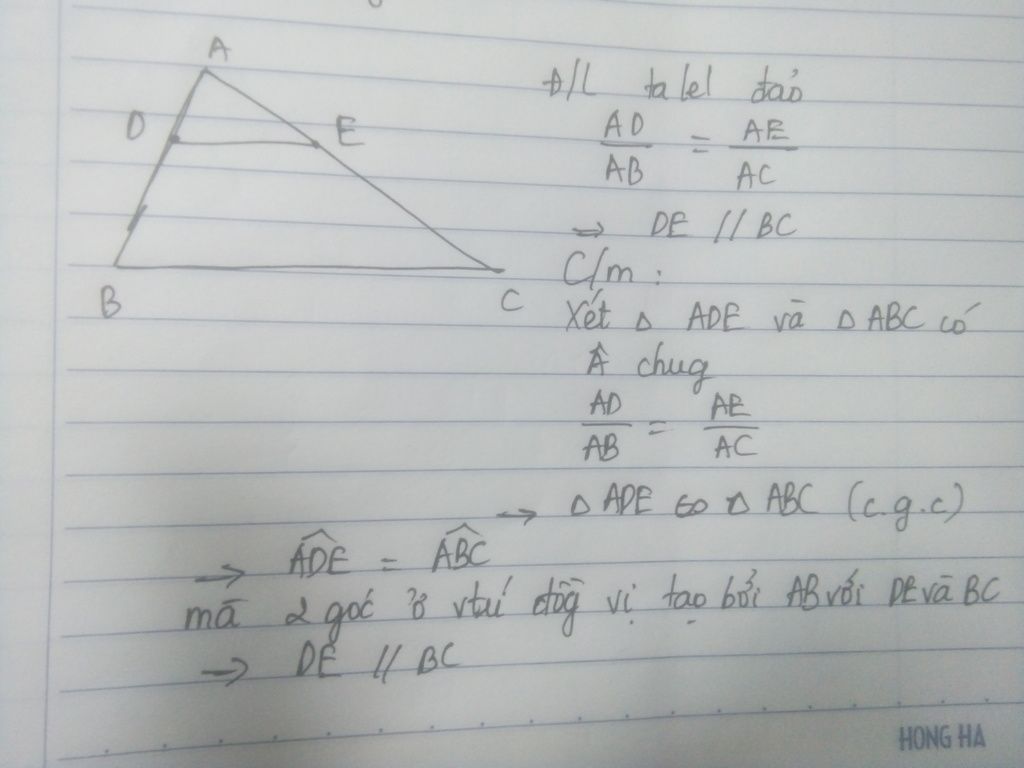 A
D
E
B
C
Đ/L ta lel đảo
AD/AB = AE/AC
→ DE // BC
C/m :
Xét △ ADE và △ ABC có
Â chug
AD/AB = AE/AC
→ △ ADE ∽ △ ABC (c.g.c)
→ ADE = ABC
mà 2 góc ở vtrí đồg vị tạo bởi AB với DE và BC
→ DE // BC
HONG HA